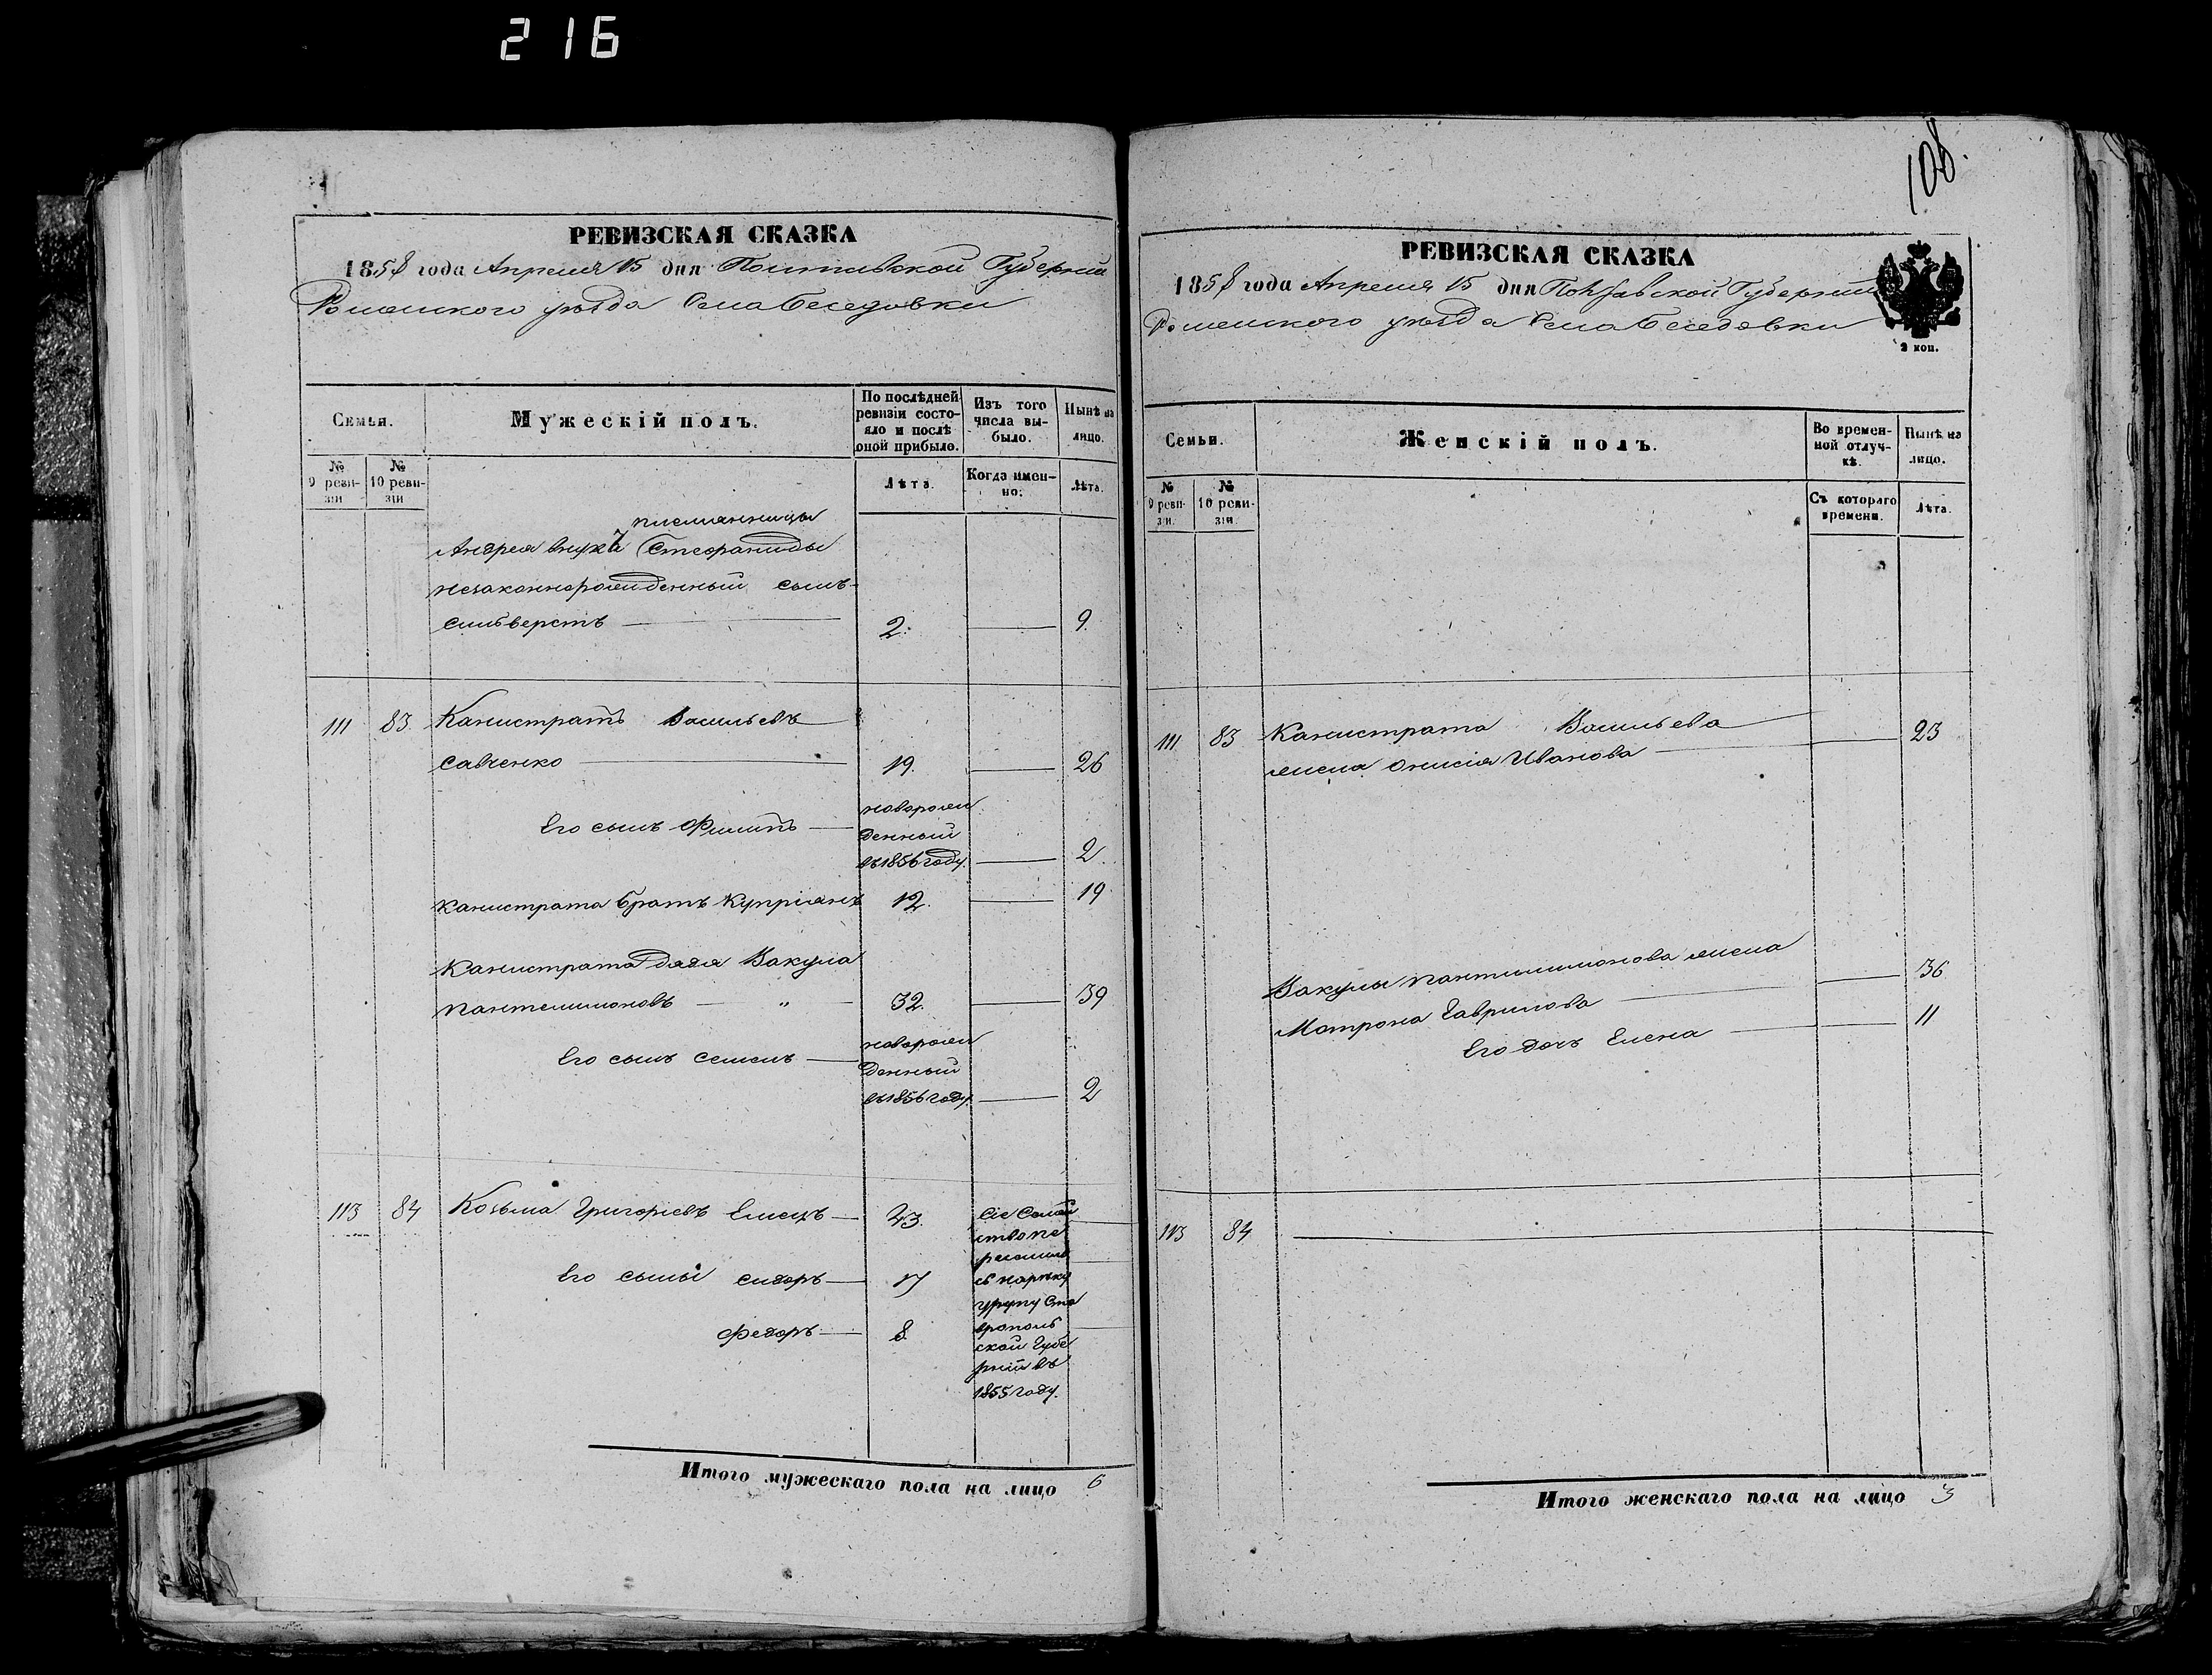 216
РЕВИЗСКАЯ СКАЗКА
1858 года Апреля 15 дня Полтавской Губернии
Роменского уезда Села Беседовки
Семьи.
Мужескій полъ.
По послѣдней ревизіи состояло и послѣ оной прибыло.
Изъ того числа выбыло.
Нынѣ на лицо.
№ 9 ревизіи
№ 10 ревизіи
Лѣта.
Когда именно.
Лѣта.
племянницы
Андрея внука Стефаниды
незаконнорожденный сынъ
Сильверстъ 2. 9.
111 83. Канистратъ Васильевъ
Савченко 19. 26
Его сынъ Филипъ
новорож
денный
въ 1856 году. 2.
Канистрата братъ Купріянъ 12. 19
Канистрата дядя Вакула
Пантелимоновъ " 32. 39
Его сынъ Семенъ
новорож
денный
въ 1856 году. 2
113 84 Козьма Григорьевъ Емецъ 43.
Его сыны Сидоръ 17
Федоръ 8.
Сіе Семей
ство пе
реселило
сь нареку
урупу Ста
врополь
ской Губе
рніи въ
1855 году.
Итого мужескаго пола на лицо 6
108.
РЕВИЗСКАЯ СКАЗКА
1858 года Апреля 15 дня Полтавской Губерніи
Роменского уезда Села Беседовки
2 коп.
Семьи.
Женскій полъ.
Во временной отлучкѣ.
Нынѣ на лицо.
№ 9 ревизіи.
№ 10 ревизіи
Съ котораго времени.
Лѣта.
111 83 Канистрата Васильева 23
жена Онисія Иванова
Вакулы Пантилимонова жена 36
Мотрона Гаврилова
Его дочь Елена 11
113 84
Итого женскаго пола на лицо 3